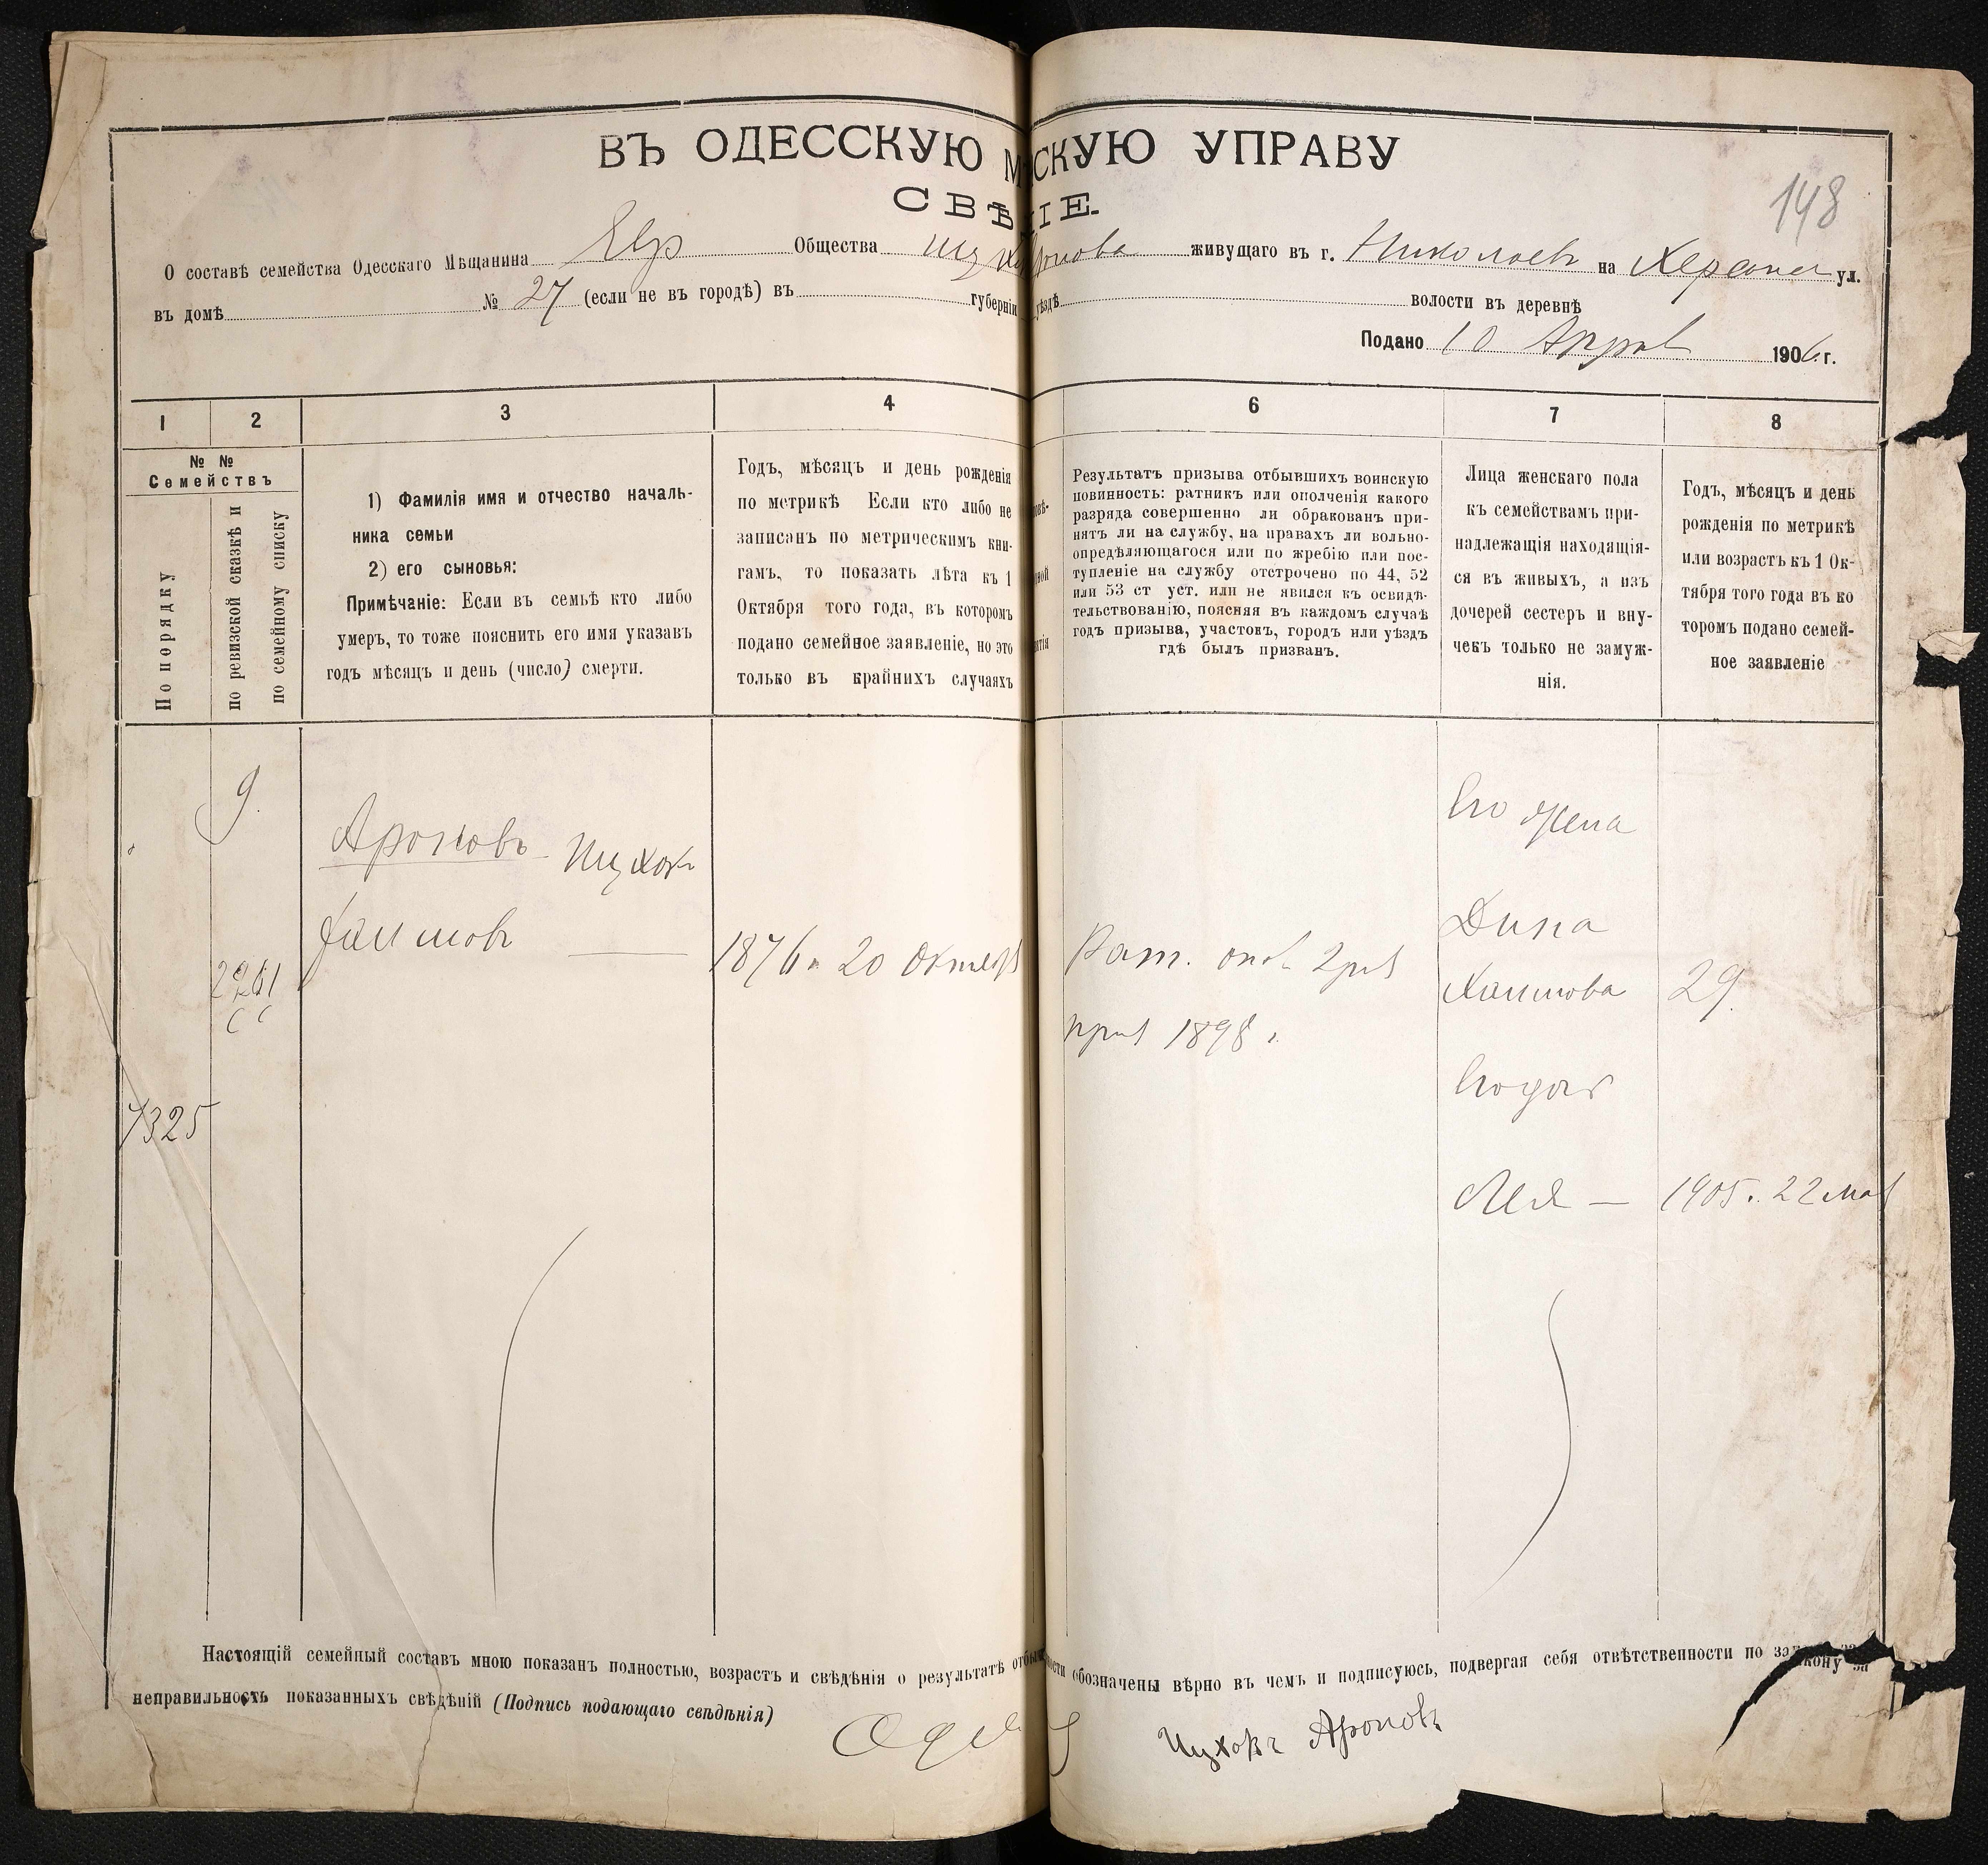 ВЪ ОДЕССКУЮ М СКУЮ УПРАВУ
СВѢ IE.
148
О составѣ семейства Одесскаго Мѣщанина Евр Общества Ицх Аронова живущаго въ г. Николаевъ на Херсонск ул.
въ домѣ № 27 (если не въ городѣ) въ губерніи уѣздѣ волости въ деревнѣ
Подано 10 Апрѣл 1906 г.
1 2 3 4 6 7 8
№ №
Семействъ
По порядку
по ревизской сказкѣ и
по семейному списку
1) Фамилія имя и отчество началь-
ника семьи
2) его сыновья:
Примѣчаніе: Если въ семьѣ кто либо
умеръ, то тоже пояснить его имя указавъ
годъ мѣсяцъ и день (число) смерти.
Годъ, мѣсяцъ и день рожденія
по метрикѣ Если кто либо не
записанъ по метрическимъ кни-
гамъ, то показать лѣта къ 1
Октября того года, въ которомъ
подано семейное заявленіе, но это
только въ крайнихъ случаяхъ
Результатъ призыва отбывшихъ воинскую
повинность: ратникъ или ополченія какого
разряда совершенно ли обракованъ при-
нятъ ли на службу, на правахъ ли вольно-
опредѣляющагося или по жребію или пос-
тупленіе на службу отстрочено по 44, 52
или 53 ст уст. или не явился къ освидѣ-
тельствованію, поясняя въ каждомъ случаѣ
годъ призыва, участовъ, городъ или уѣздъ
гдѣ былъ призванъ.
Лица женскаго пола
къ семействамъ при-
надлежащія находящія-
ся въ живыхъ, а изъ
дочерей сестеръ и вну-
чекъ только не замуж-
нія.
Годъ, мѣсяцъ и день
рожденія по метрикѣ
или возрастъ къ 1 Ок-
тября того года въ ко
торомъ подано семей-
ное заявленіе
9.
Ароновъ Ицхок
Хаимовъ
1876 г. 20 Октябр
7325
Рат. опол 2 раз
приз 1898 г.
Его жена
Дина
Хаимова 29
Его доч
Лея — 1905 г. 22 мая
Настоящій семейный составъ мною показанъ полностью, возрастъ и свѣдѣнія о результатѣ отбы ности обозначены вѣрно въ чемъ и подписуюсь, подвергая себя отвѣтственности по закону за
неправильность показанныхъ свѣдѣній (Подпись подающаго свѣдѣнія)
Ицхокъ Ароновъ